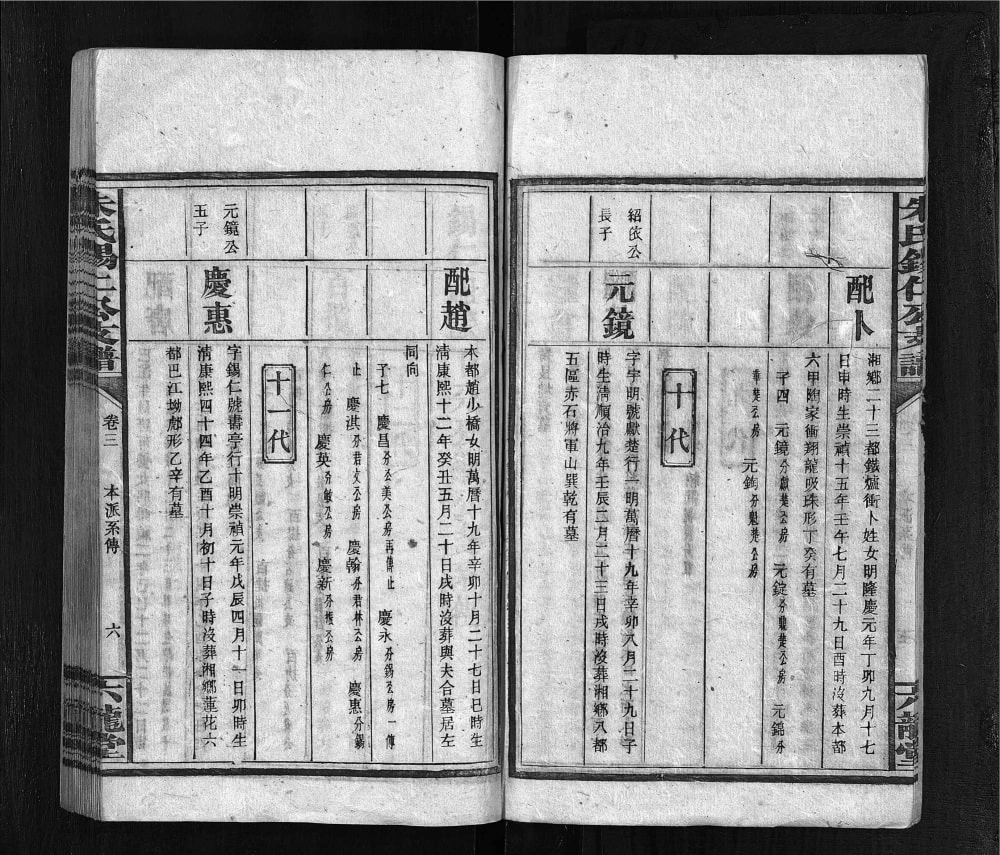 配卜
湘鄉二十三都鐵爐衝卜姓女明隆慶元年丁卯九月十七
日申時生崇禎十五年壬午七月二十九日酉時沒葬本都
六甲陶家衝翔龍吸珠形丁癸有墓
子四 元鏡分獻楚公房 元錠分聽楚公房 元錦分
章楚公房 元鉤分魁楚公房
十代
紹依公
長子
元鏡
字宇明號獻楚行一明萬曆十九年辛卯八月二十九日子
時生清順治九年壬辰二月二十三日戌時沒葬湘鄉八都
五區赤石將軍山巽乾有墓
朱氏錫仁公支譜
六龍堂
配趙
本都趙少橋女明萬曆十九年辛卯十月二十七日巳時生
清康熙十二年癸丑五月二十日戌時沒葬與夫合墓居左
同向
子七 慶昌分公美公房再傳止 慶永分錫公房一傳
止 慶淇分君文公房 慶翰分君林公房 慶惠分錫
仁公房 慶英分敏公房 慶新分公房
十一代
元鏡公
五子
慶惠
字錫仁號書亭行十明崇禎元年戊辰四月十一日卯時生
清康熙四十四年乙酉十月初十日子時沒葬湘鄉蓮花六
都巴江坳形乙辛有墓
朱氏錫仁公支譜
卷三
本派系傳
六
六龍堂